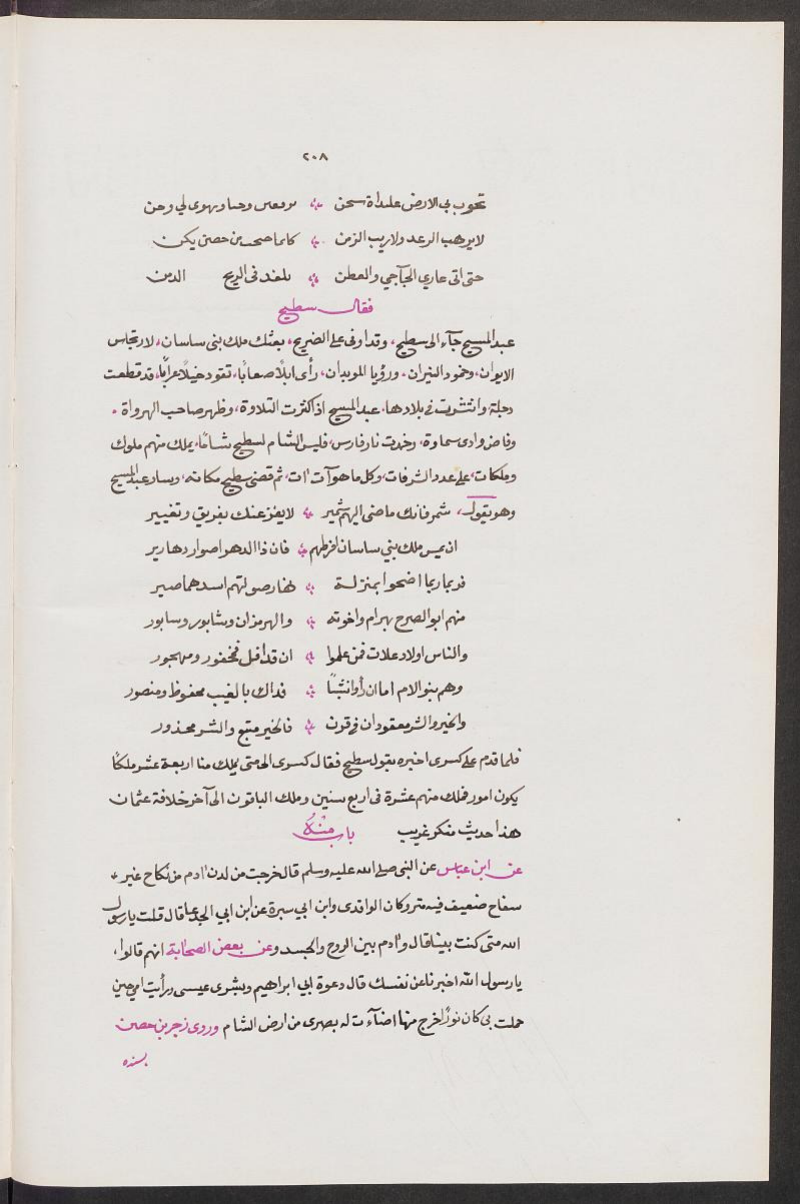 ٢٠٨
تجوب بي الارض علنداة سجن ؞ يرفعنى وجنا ويهوى لي وجن
لايرهب الرعد ولاريب الزمن ؞ كانما حثحث من حصنى ثكن
حتى اتى عاري الجآجي والعطن ؞ تلفه فى الريح الدمن
فقال سطيح
عبد المسيح جآء الى سطيح، وقد اوفى على الضريح، بعثك ملك بنى ساسان، لارتجاس
الايوان، وخمود النيران، ورؤيا الموبدان، رأى ابلًا صعابًا، تقود خيلًا عرابًا، قد قطعت
دجلة وانتشرت فى بلادها، عبد المسيح اذ اكثرت التلاوة، وظهر صاحب الهرواة،
وفاض وادى سماوة، وخمدت نار فارس، فليس الشام لسطيح شامًا، يملك منهم ملوك
وملكات، على عدد الشرفات، وكل ما هو آت ات، ثم قضى سطيح مكانه، وسار عبد المسيح
وهو يقول، شمر فانك ماضى الهم شمير ؞ لايفزعنك تفريق وتغيير
ان يمس ملك بني ساسان افرطهم ؞ فان ذا الدهر اصوار دهارير
فربما ربما اضحوا بمنزلة ؞ تهاب صولتهم اسد مهاصير
منهم ابو الصرح بهرام واخوته ؞ والهرمزان وشابور وسابور
والناس اولاد علات فمن علموا ؞ ان قد اقل فمحقور ومهجور
وهم بنو الام اما ان رأوا نشبًا ؞ فذاك بالغيب محفوظ ومنصور
والخير والشر معقودان فى قرن ؞ فالخير متبع والشر محذور
فلما قدم على كسرى اخبره بقول سطيح فقال كسرى الى متى يملك منا اربعة عشر ملكًا
يكون امور فملك منهم عشرة فى اربع سنين وملك الباقون الى آخر خلافة عثمان
هذا حديث منكر غريب باب منه
عن ابن عباس عن النبى صلى الله عليه وسلم قال خرجت من لدن ادم من نكاح غير
سفاح ضعيف فيه متروكان الواقدى وابن ابي سبرة عن ابن ابي الجدعا قال قلت يارسول
الله متى كنت نبيا قال وادم بين الروح والجسد وعن بعض الصحابة انهم قالوا،
يارسول الله اخبرنا عن نفسك قال دعوة ابي ابراهيم وبشرى عيسى ورأيت امي حين
حملت بي كان نورًا خرج منها اضآءت له بصرى من ارض الشام وروى زجر بن حصن
بسنده